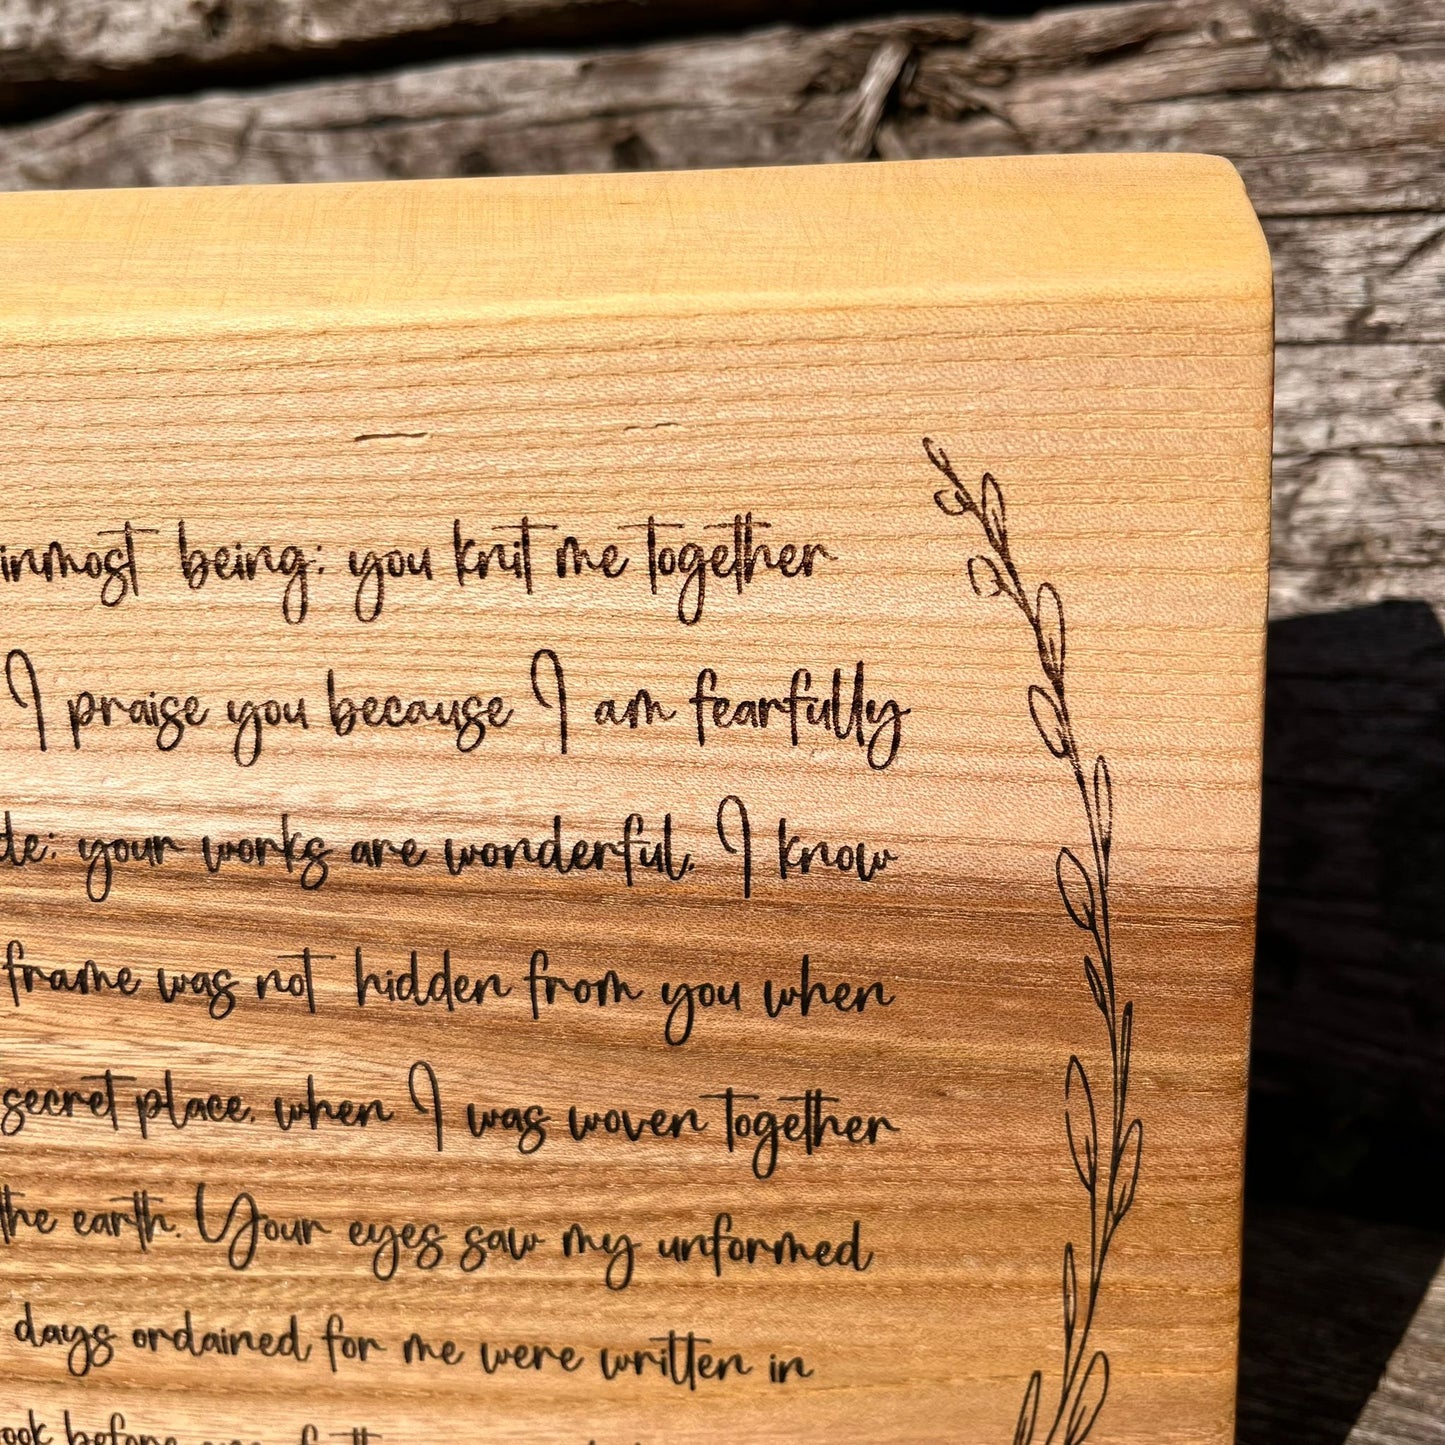 inmost being; you knit me together
I praise you because I am fearfully
de; your works are wonderful, I know
frame was not hidden from you when
secret place, when I was woven together
the earth. Your eyes saw my unformed
days ordained for me were written in
ook before